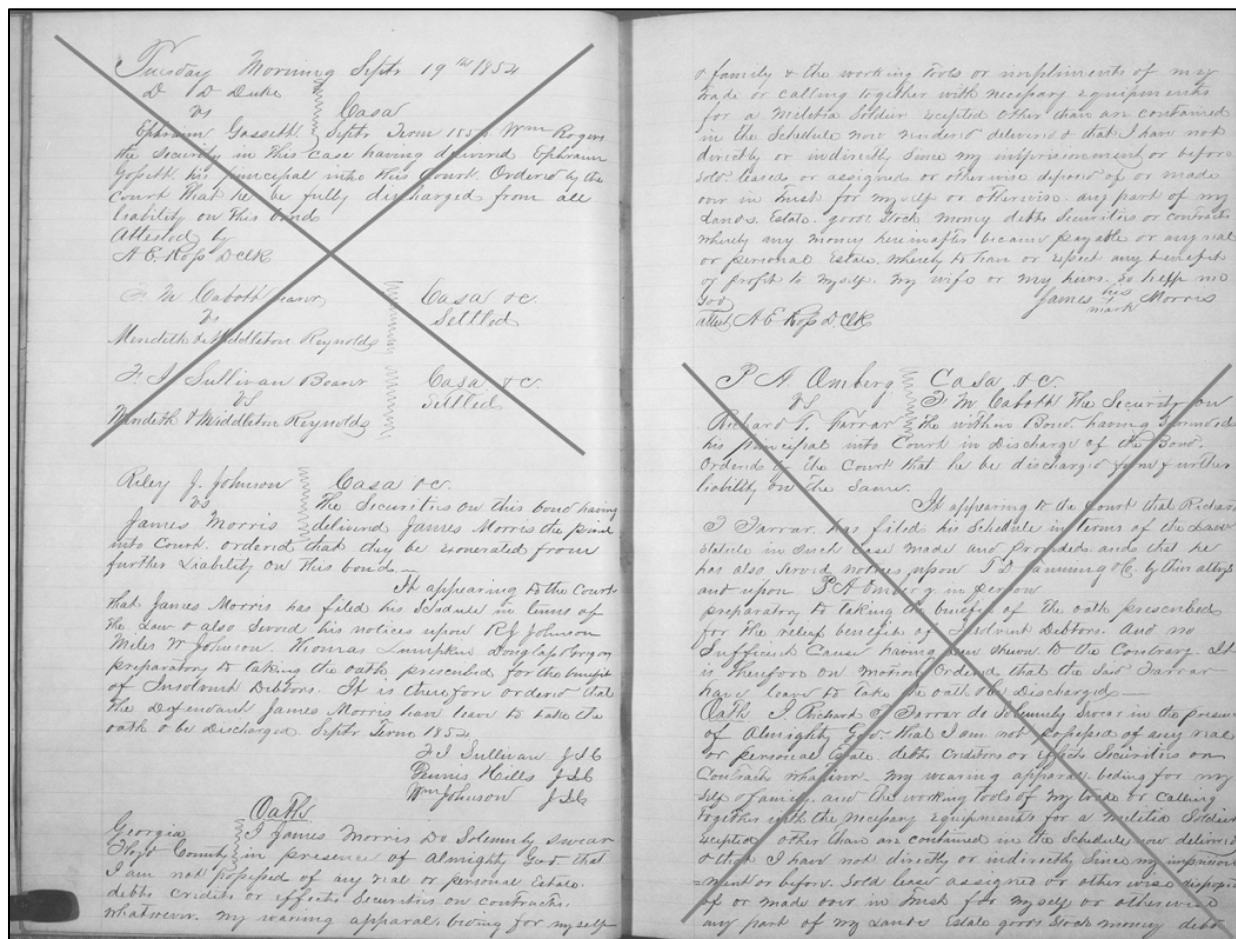 Tuesday Morning Septr 19th 1854
D D Duke
vs Casa
Ephraim Gassett Septr Term 185 . Wm Rogers
the Security in this case having delivered Ephraim
Gossett his principal into this Court. Ordered by the
Court that he be fully discharged from all
liability on this bond
Attested by
A E. Ross D Clk
F. M Cabott Casa &c.
vs Settled
Meredith & Middleton Reynolds
F. J Sullivan Bearer Casa &c.
vs Settled
Meredith & Middleton Reynolds
Riley J. Johnson Casa &c.
vs The Securities on this bond having
James Morris delivered James Morris the
into Court. ordered that they be exonerated from
further Liability on this bond. —
It appearing to the Court
that James Morris has filed his Schedule in terms of
the Law & also Served his notices upon RJ Johnson
Miles W Johnson. Thomas Lumpkin Douglass
preparatory to taking the oath prescribed for the benefit
of Insolvent Debtors. It is therefore ordered that
the Defendant James Morris have leave to take the
oath & be discharged Septr Term 1854
F J Sullivan JIC
Dennis Hills JIC
Wm Johnson JIC
Oath
Georgia I James Morris Do Solemnly swear
Floyd County in presence of almighty God that
I am not possessed of any real or personal Estate.
debts credits or effects Securities or contracts
whatsoever. My waring apparal, beding for myself
& family & the working Tools or impliments of my
trade or calling together with necessary equipments
for a Militia Soldier excepted other than are contained
in the Schedule now delivered & that I have not
directly or indirectly Since my imprisionment or before
Sold. leased or assigned or otherwise disposed of or made
over in trust for myself or otherwise. any part of my
Lands. Estate. goods Stock money debts Securities or contracts
whereby any money hereinafter became payable or any real
or personal Estate. whereby to have or expect any benefit
or profit to myself. My wife or my heirs. So help me
God James his mark Morris
attest A E Ross D. Clk
P A. Omberg Casa &c.
vs F M Cabott The Security on
Richard T. Farrar the within Bond. having
his principal into Court in Discharge of the Bond.
Orderd by the Court that he be discharged form further
liability on the Same.
It appearing to the Court that Richard
T Farrar. has filed his Schedule in terms of the Law
Statute in Such Case made and Provided. and that he
has also Served notices upon &C. by their attys
and upon P A Omberg in person
preparatory to taking the benefit of the oath prescribed
for the relief benefit of Insolvent Debtors. And no
Sufficient Cause having been Shewn to the Contrary. It
is therefore on motion Ordered, that the Said Farrar
have leave to take the oath & be Discharged —
Oath. I. Richard T Farrar do Solemnly Swear in the presence
of Almighty God. that I am not possessed of any real
or personal Estate. debts Creditors or effects Securities or
Contracts whatever. My wearing apparal. beding for my
Self & family. and the working tools of my trade or calling
together with the necessary equipments for a Militia Soldier
excepted other than are contained in the Schedule now delivered
& that I have not directly or indirectly Since my imprision
=ment or before. Sold lease assigned or other wise disposed
of or made over in trust for myself or otherwise
any part of my Lands Estate goods Stock money debts